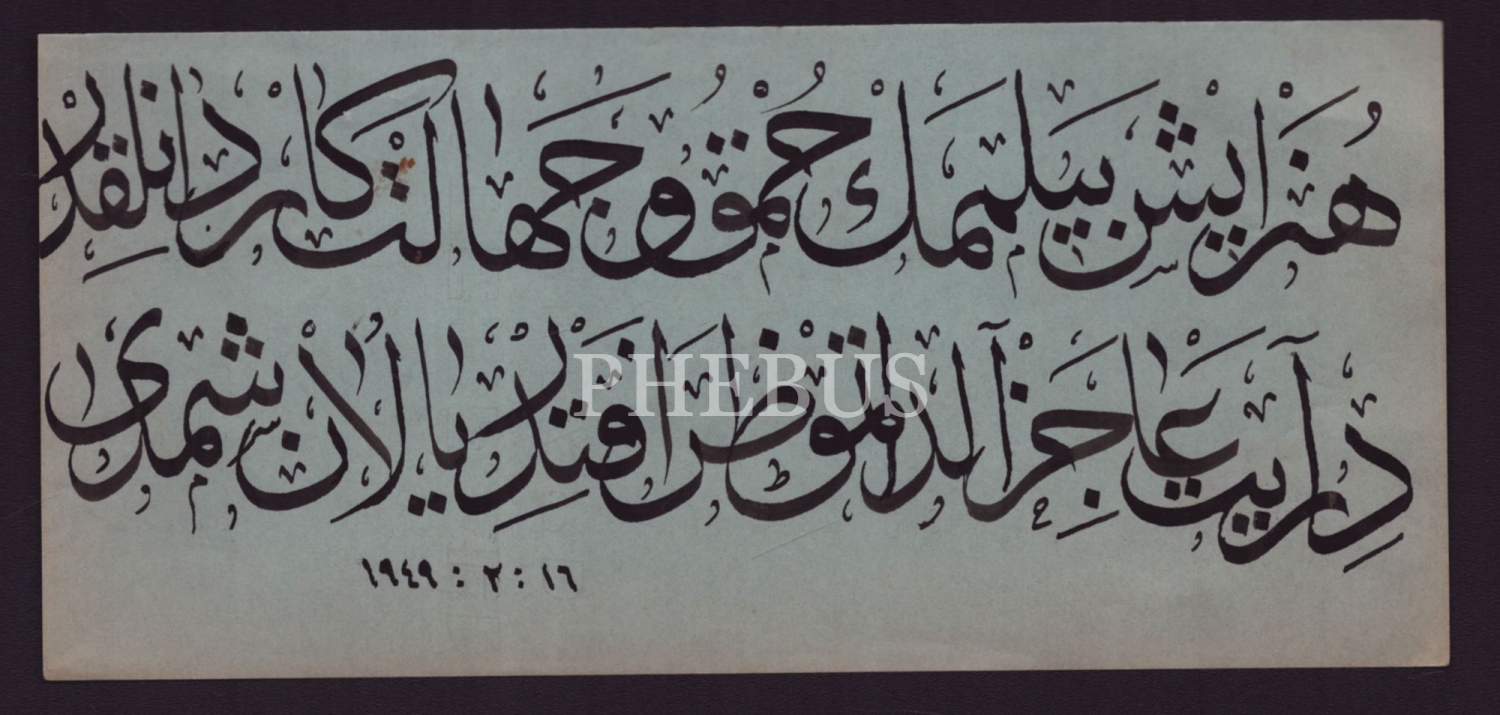 هنر ايش بيلممك حمق و جهالت كاردانلقدر
درايت عاجز آلداتمق ظرافتدر يالان شمدى
١٦ : ٢ : ١٩٤٩
PHEBUS